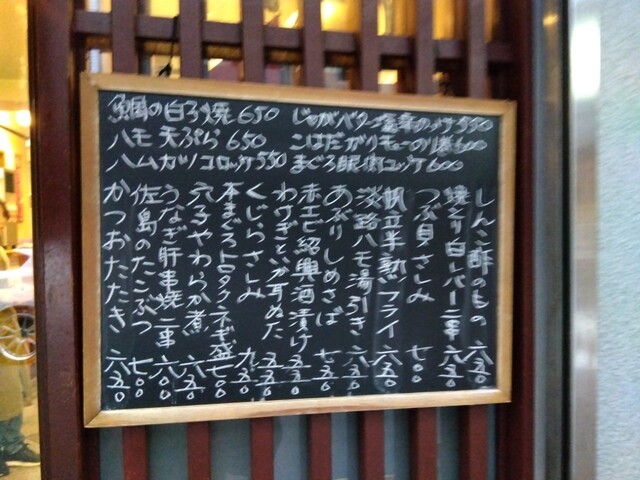 鯛の白子焼 650
ハモ天ぷら 650
ハムカツコロッケ 550
じゃがバター塩辛のっけ 550
こはだガリキューのり巻 600
まぐろ 600
しんこ酢のもの 六五〇
焼とり白レバー二串 六五〇
つぶ貝さしみ 七〇〇
帆立半熟フライ 六五〇
淡路ハモ湯引き 六五〇
あぶりしめさば 七五〇
赤エビ紹興酒漬け 五五〇
わけぎといか耳ぬた 五五〇
くじらさしみ 九五〇
本まぐろトロタクネギ盛 七〇〇
穴子やわらか煮 六五〇
うなぎ肝串焼二串 六〇〇
佐島のたこぶつ 七〇〇
かつおたたき 六五〇